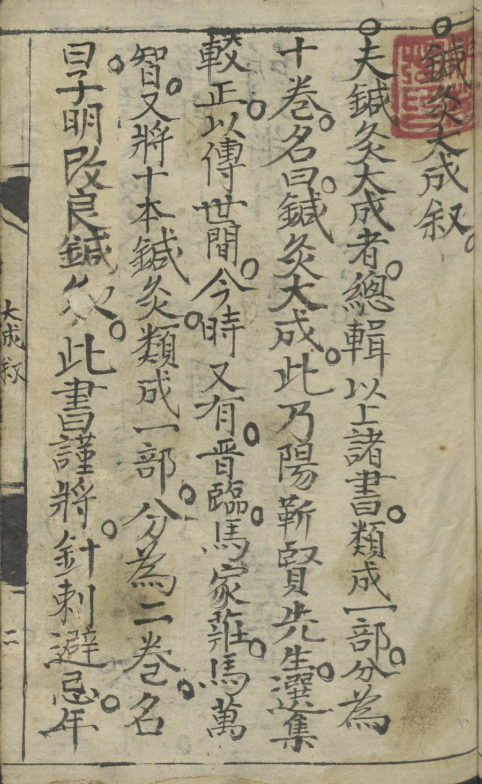 鍼灸大成叙。
夫鍼灸大成者。總輯以上諸書。類成一部。分為
十卷。名曰。鍼灸大成。此乃陽靳賢先生。選集
較正。以傳世間。今時又有。晋臨。馬家莊。馬萬
智。又將十本鍼灸。類成一部。分為二卷。名
曰。子明改良鍼灸。此書謹將。針刺避忌。年
大成叙
二